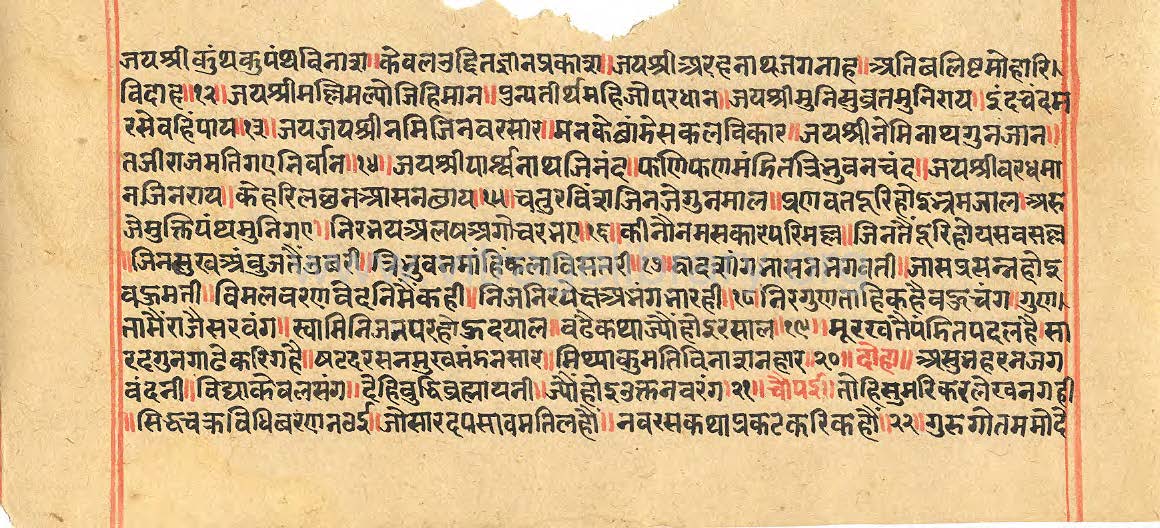 जयश्रीकुंथकुपंथविनाश॥केवलउदितज्ञानप्रकाश॥जयश्रीअरहनाथजगनाह॥अतिबलिष्टमोहारि।
विदाह॥१२॥जयश्रीमल्लिमल्योजिहिमान॥पुन्यतीर्थमहिजोपरधान॥जयश्रीमुनिसुव्रतमुनिराय॥इंदचंदम
रसेवहिपाय॥१३॥जयजयश्रीनमिजिनवरसार॥मनकेछांडेसकलविकार॥जयश्रीनेमिनाथगुनजान॥
तजीराजमतिगएनिर्वान॥१४॥जयश्रीपार्श्वनाथजिनंद॥फणिफणमंडितत्रिभुवनचंद॥जयश्रीवरधमा
नजिनराय॥केहरिलछनआसनठाय॥१५॥चतुरविंशजिनजेगुनमाल॥प्रणवतदूरिहोइभ्रमजाल॥अरु
जेमुक्तिपंथमुनिगए॥निरभयअलषअगोचरभए॥१६॥कीनौनमसकारपरिमल्ल॥जिनतैंदूरिहोयसबसल्ल
॥जिनमुखअंबुजतैंऊचरी॥त्रिभुवनमांहिकलाविसतरी॥१७॥द्वादशांगनासनभगवती॥जासप्रसन्नहोइ
बहुमती॥विमलवरणवेदनिमैंकही॥निजनिरषेदअभंगभारही॥१८॥निरगुणतोहिकहैबहुचंग॥गुण।
तामैंराजैसरवंग॥स्वामिनिजनपरहोहुदयाल॥बढैकथाज्यौंहोइरसाल॥१९॥मूरखतैंपंडितपदलहै॥सा
रदगुनगाढेकरिगहै॥षटदरसनमुखमंडनसार॥मिथ्याकुमतिविनाशनहार॥२०॥दोहा॥असुभहरनजग
वंदनी॥विद्याकेवलसंग॥देहिबुद्धिब्रह्मायनी॥ज्यौंहोइउक्तनवरंग॥२१॥चौपई॥तोहिसुमरिकरलेखनगही
॥सिद्धचक्रविधिबरणनठई॥जौसारदपसावमतिलहौं॥नवरसकथाप्रकटकरिकहौं॥२२॥गुरुगौतममोदे